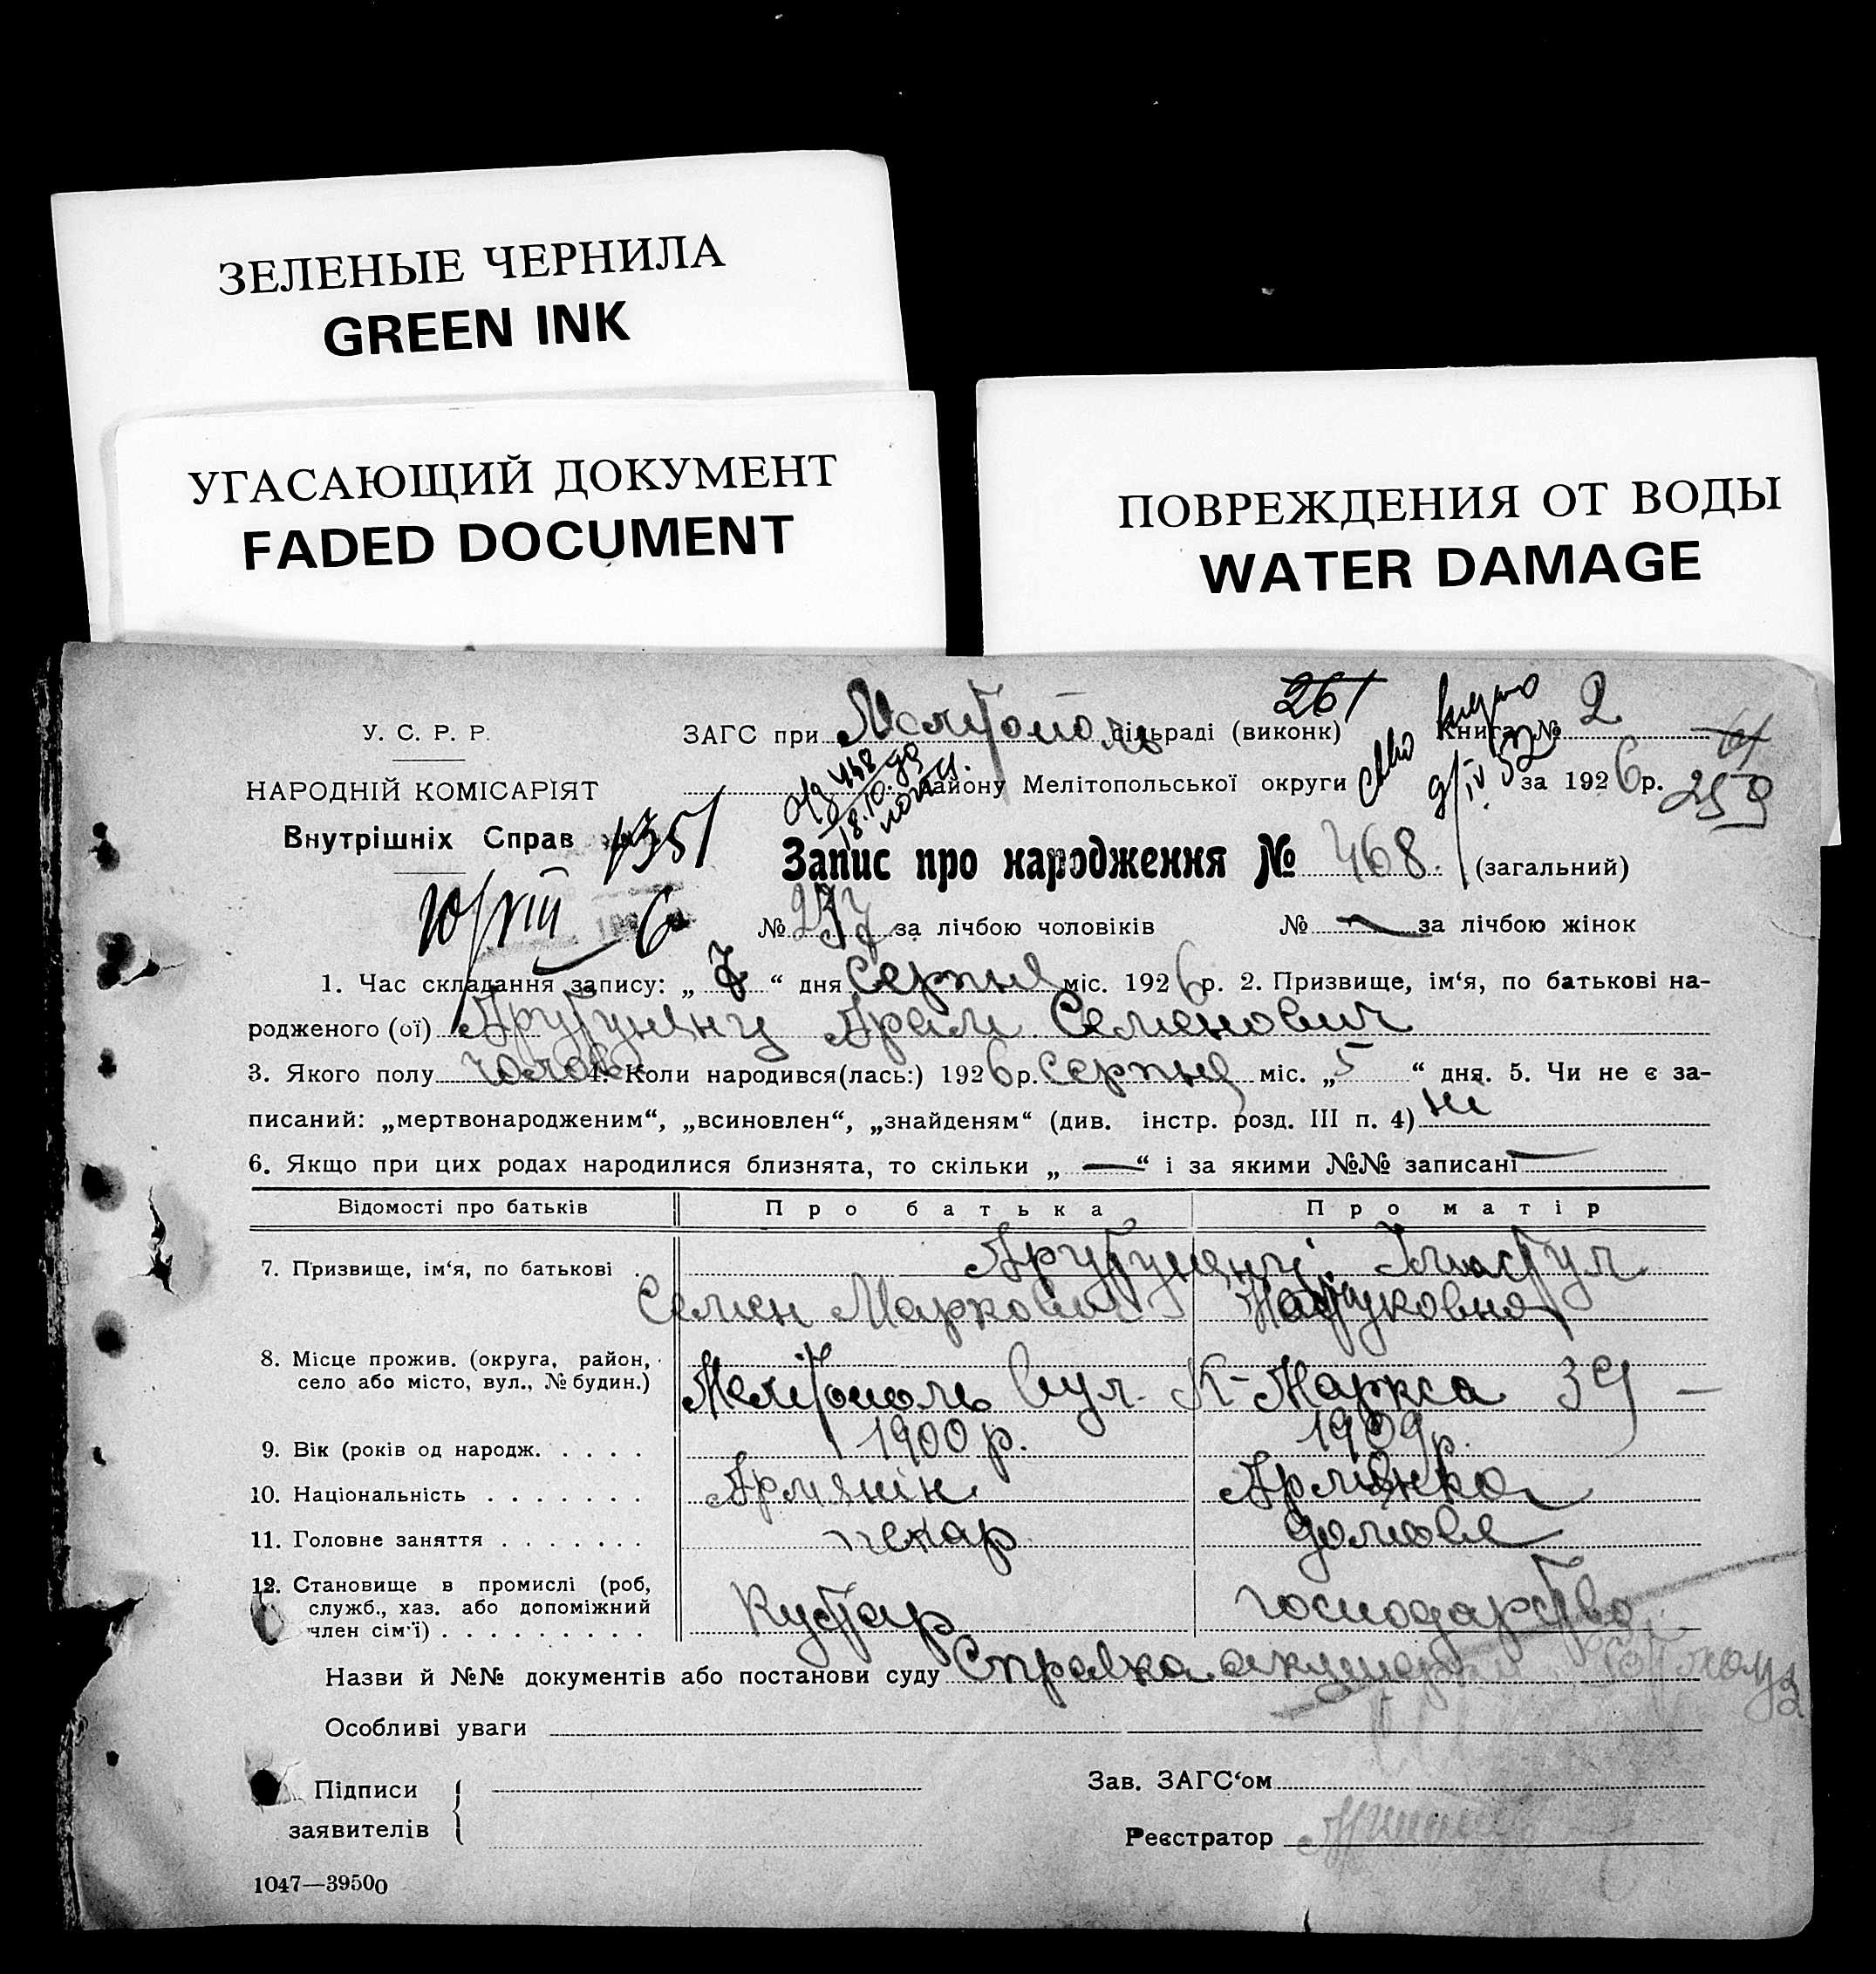 ЗЕЛЕНЫЕ ЧЕРНИЛА
GREEN INK
УГАСАЮЩИЙ ДОКУМЕНТ
FADED DOCUMENT
ПОВРЕЖДЕНИЯ ОТ ВОДЫ
WATER DAMAGE
261
У. С. Р. Р.
ЗАГС при Мелітополь сільраді (виконк) Книга № 2
НАРОДНІЙ КОМІСАРІЯТ
району Мелітопольської округи за 1926 р.
259
Внутрішніх Справ 1351
Запис про народження № 468. (загальний)
10/VIII 6
№ 237 за лічбою чоловіків № — за лічбою жінок
1. Час складання запису: „ 7 “ дня Серпня міс. 1926 р. 2. Призвище, ім‘я, по батькові на-
родженого (ої) Арутунянц Арам Семенович
3. Якого полу чолов. 4. Коли народився(лась:) 1926 р. Серпня міс. „ 5 “ дня. 5. Чи не є за-
писаний: „мертвонародженим“, „всиновлен“, „знайденям“ (див. інстр. розд. III п. 4) ні
6. Якщо при цих родах народилися близнята, то скільки „ — “ і за якими №№ записані —
Відомості про батьків Про батька Про матір
7. Призвище, ім‘я, по батькові .
Семен Маркович
8. Місце прожив. (округа, район,
село або місто, вул., № будин.)
Мелітополь вул. К-Маркса 39 —
9. Вік (років од народж. . . . . 1900 р. 1909 р.
10. Національність . . . . . . . Армянін Армянка
11. Головне заняття . . . . . . . пекар домове
12. Становище в промислі (роб,
служб., хаз. або допоміжний
член сім‘ї) . . . . . . . . . Кустар господарство
Назви й №№ документів або постанови суду Справка акушерки
Особливі уваги
Підписи
заявителів
Зав. ЗАГС‘ом
Реєстратор
1047—39500